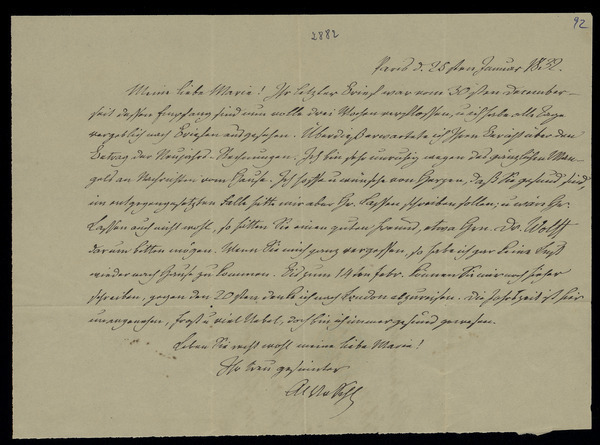 92
2882
Paris d. 25sten Januar 1832.
Meine liebe Marie! Ihr letzter Brief war vom 30sten December
seit dessen Empfang sind nun volle drei Wochen verflossen, u ich habe alle Tage
vergeblich nach Briefen ausgesehen. Überdieß erwartete ich Ihren Bericht über den
Betrag der Neujahrs-Rechnungen. Ich bin sehr unruhig wegen des gänzlichen Man-
gels an Nachrichten vom Hause. Ich hoffe u wünsche von Herzen, daß Sie gesund sind,
im entgegengesetzten Falle hätte mir aber Hr. Lassen schreiben sollen; u wäre Hr.
Lassen auch nicht wohl, so hätten Sie einen guten Freund, etwa Hrn. Dr. Wolff
darum bitten mögen. Wenn Sie mich ganz vergessen, so habe ich gar keine Lust
wieder nach Hause zu kommen. Bis zum 14ten Febr. können Sie mir noch hieher
schreiben, gegen den 20sten denke ich nach London abzureisen. Die Jahrszeit ist hier
unangenehm, Frost u viel Nebel, doch bin ich immer gesund gewesen.
Leben Sie recht wohl meine liebe Marie!
Ihr treu gesinnter
AWvSchl